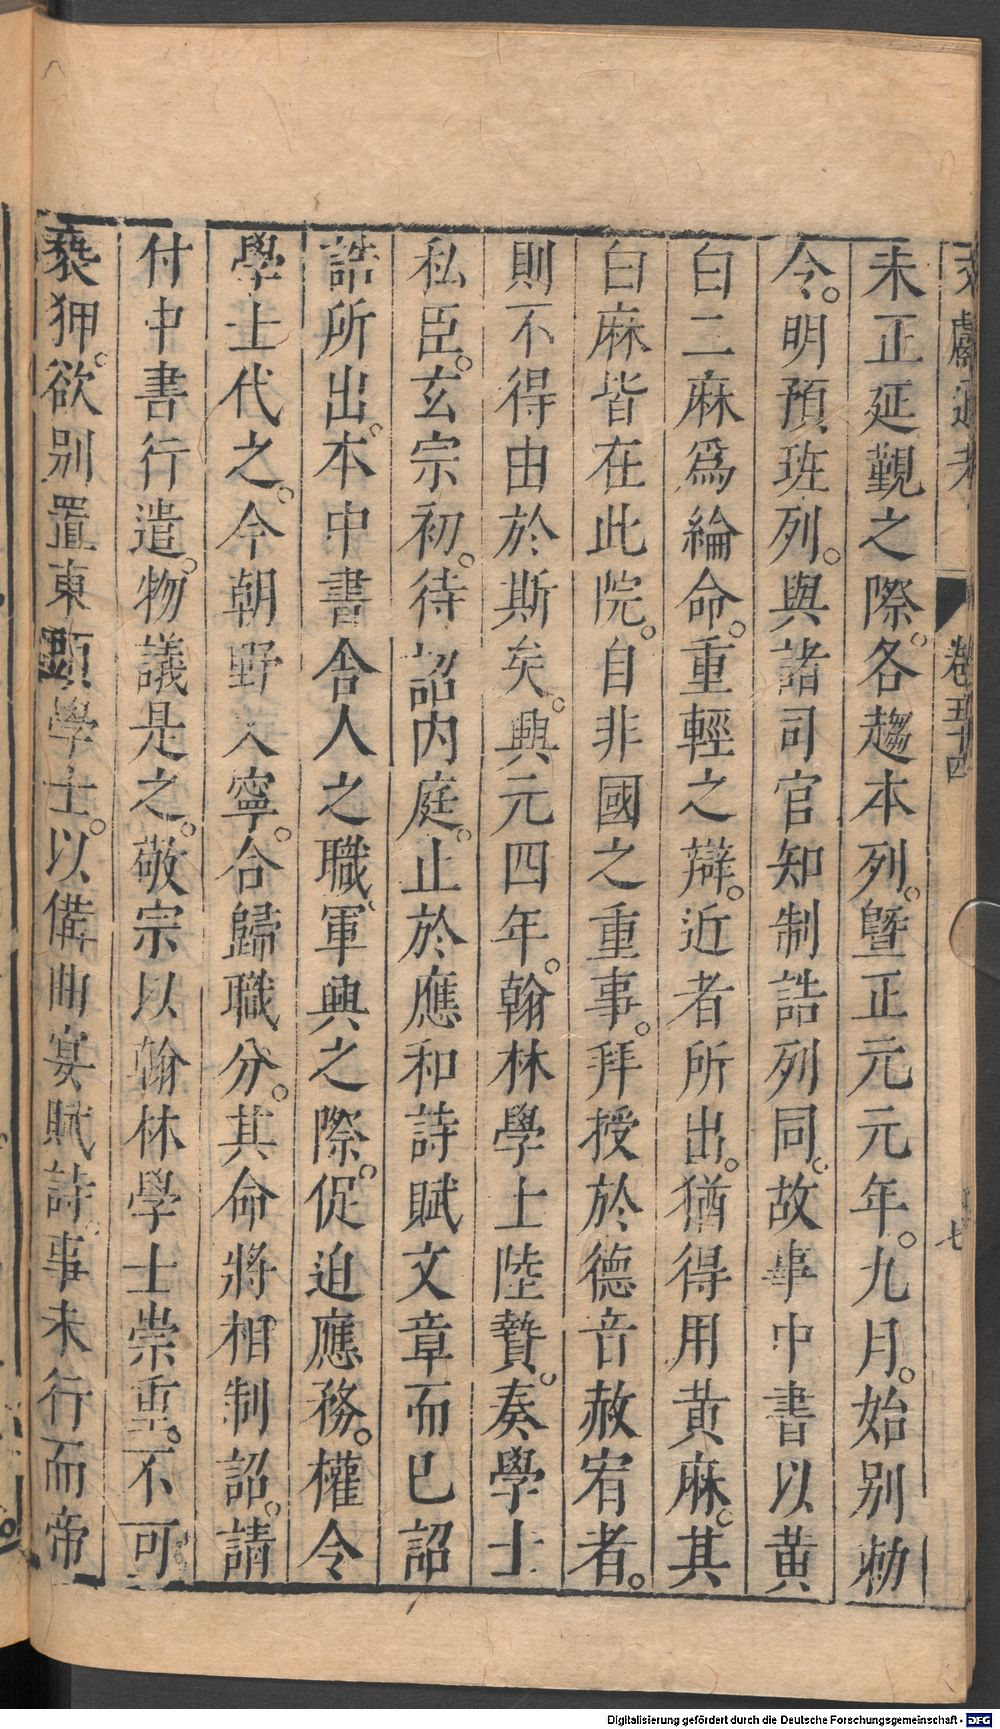 文獻通考 卷五十四 七
未正延覲之際。各趨本列。暨正元元年。九月。始别勑
令。明預班列。與諸司官知制誥列同。故事中書以黃
白二麻爲綸命。重輕之辯。近者所出。猶得用黃麻。其
白麻皆在此院。自非國之重事。拜授於德音赦宥者。
則不得由於斯矣。興元四年。翰林學士陸贄。奏學士
私臣。玄宗初。待詔內庭。止於應和詩賦文章而已詔
誥所出。本中書舍人之職。軍興之際。促迫應務。權令
學士代之。今朝野乂寧。合歸職分。其命將相制詔。請
付中書行遣。物議是之。敬宗以翰林學士崇重。不可
褻狎。欲别置東頭學士。以備曲宴賦詩。事未行而帝
Digitalisierung gefördert durch die Deutsche Forschungsgemeinschaft - DFG